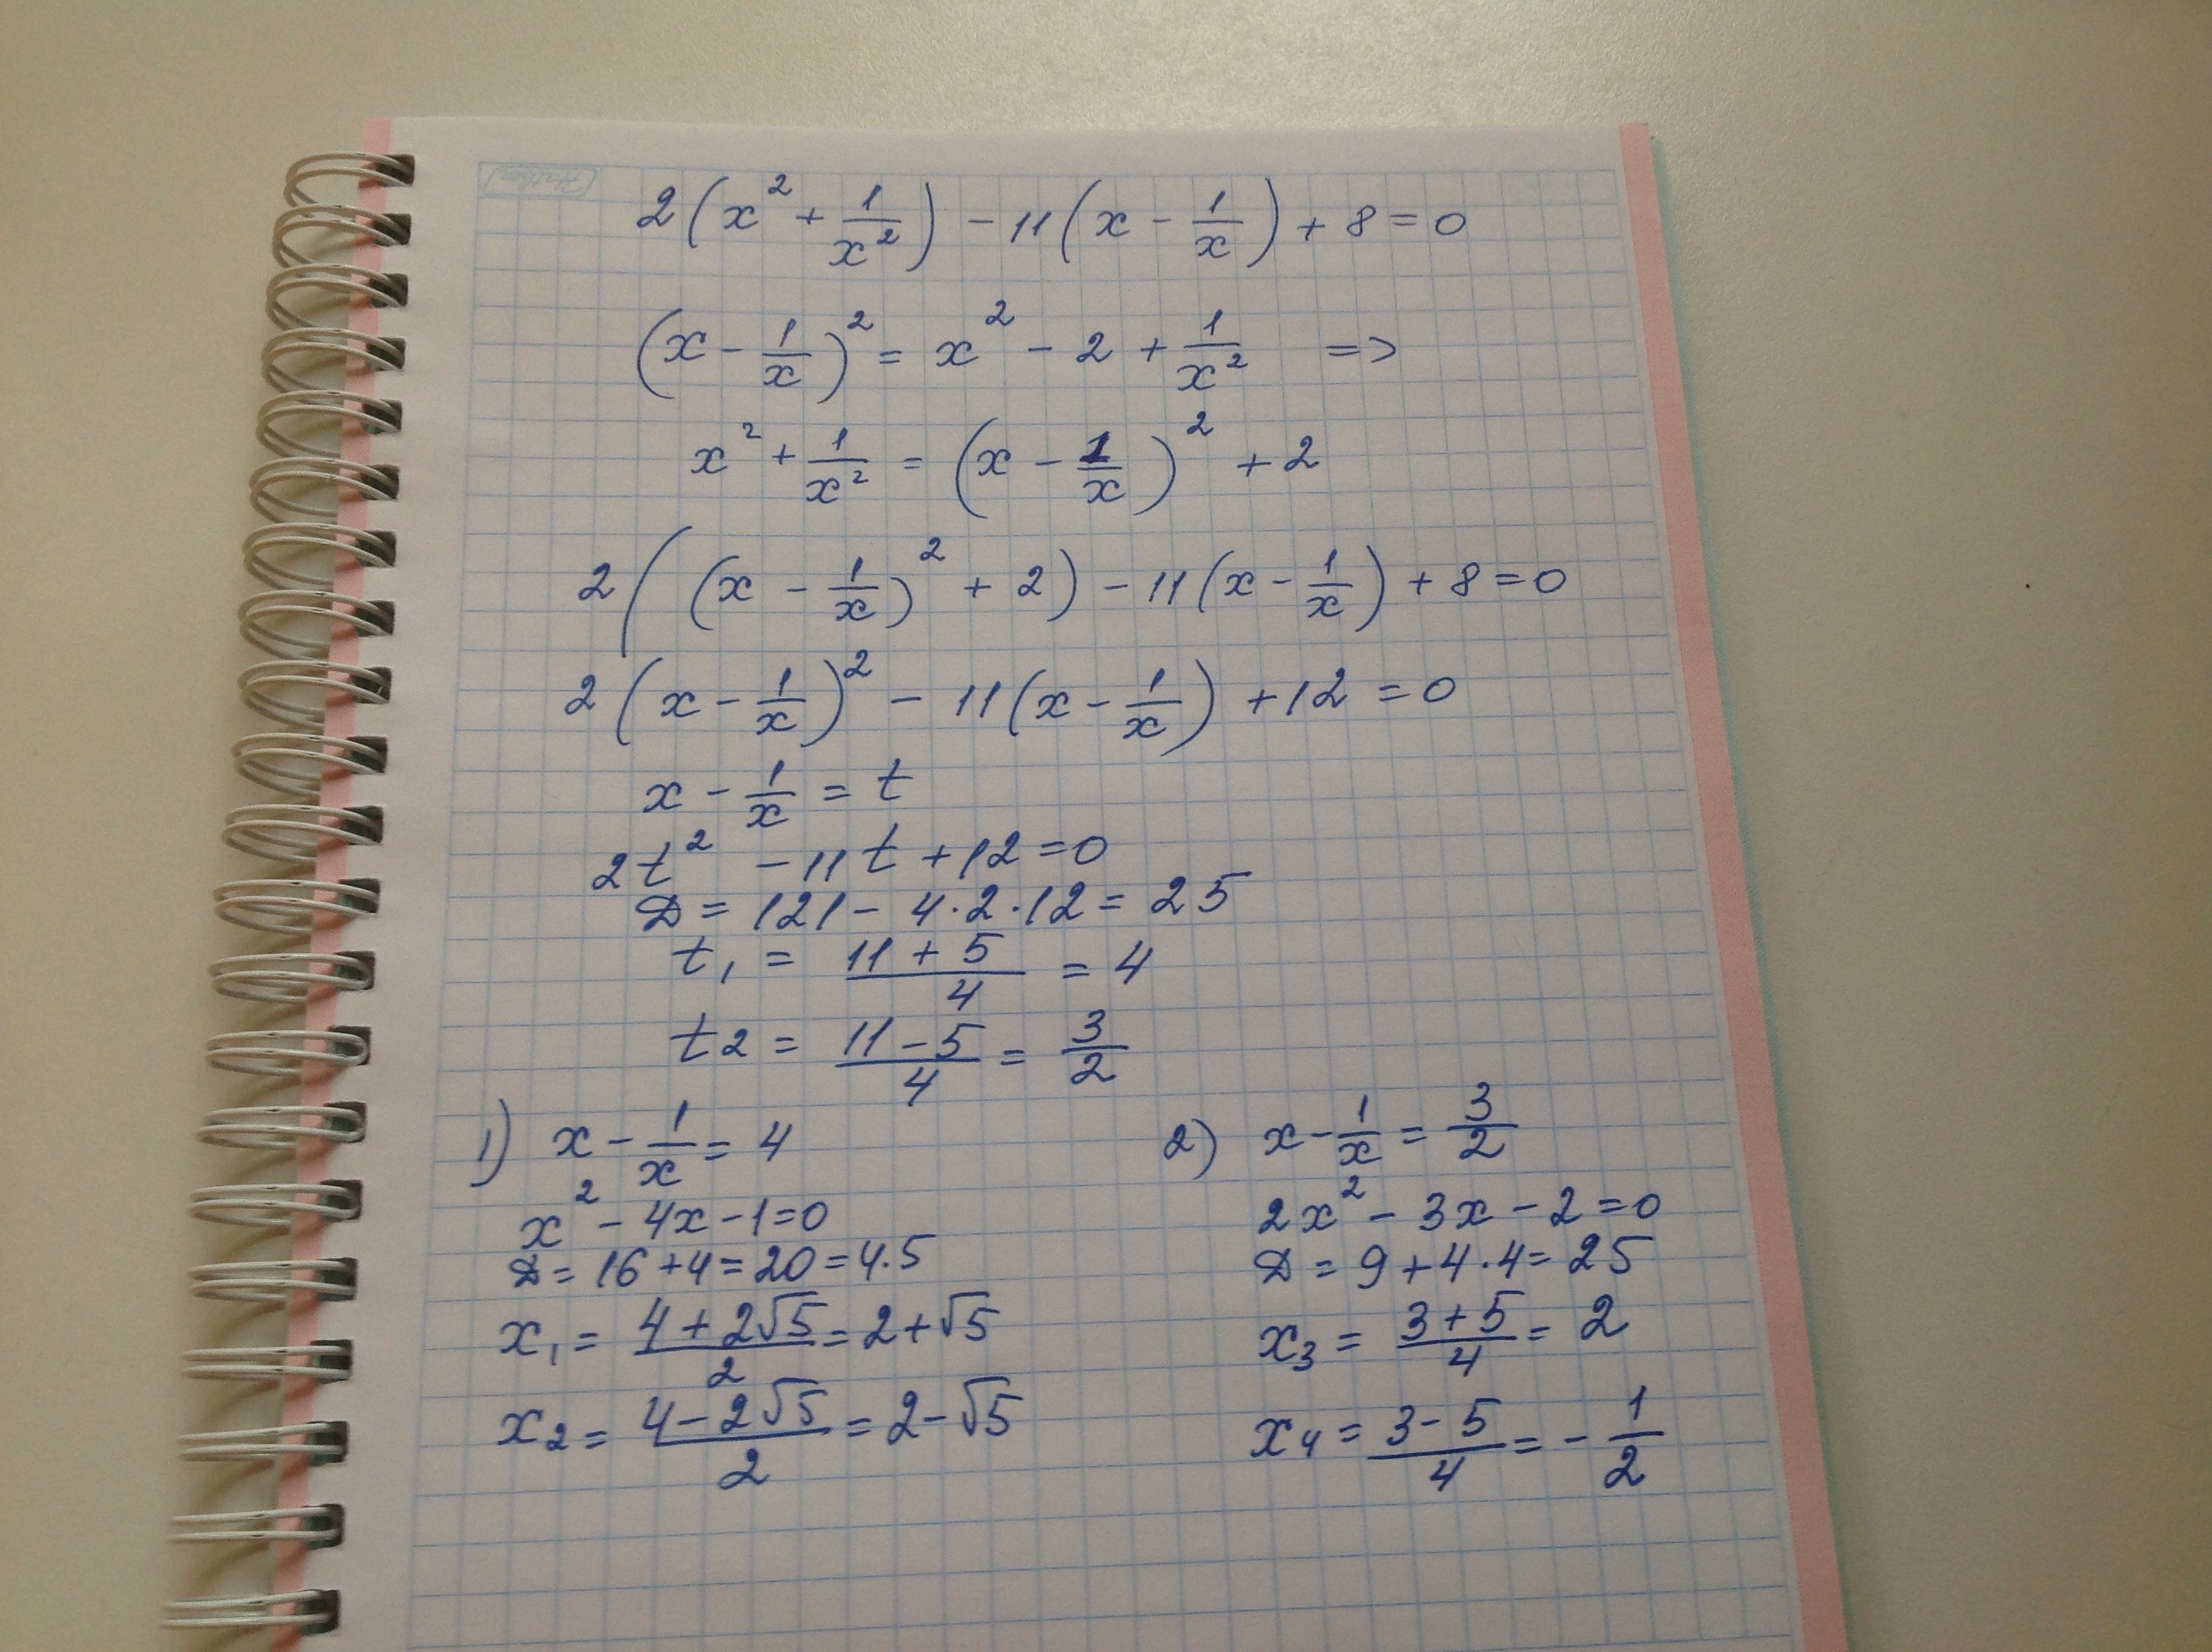 2(x² + 1/x²) - 11(x - 1/x) + 8 = 0
(x - 1/x)² = x² - 2 + 1/x² =>
x² + 1/x² = (x - 1/x)² + 2
2((x - 1/x)² + 2) - 11(x - 1/x) + 8 = 0
2(x - 1/x)² - 11(x - 1/x) + 12 = 0
x - 1/x = t
2t² - 11t + 12 = 0
D = 121 - 4·2·12 = 25
t₁ = (11 + 5)/4 = 4
t2 = (11 - 5)/4 = 3/2
1) x - 1/x = 4
x² - 4x - 1 = 0
D = 16 + 4 = 20 = 4·5
x₁ = (4 + 2√5)/2 = 2 + √5
x₂ = (4 - 2√5)/2 = 2 - √5
2) x - 1/x = 3/2
2x² - 3x - 2 = 0
D = 9 + 4·4 = 25
x₃ = (3 + 5)/4 = 2
x₄ = (3 - 5)/4 = - 1/2